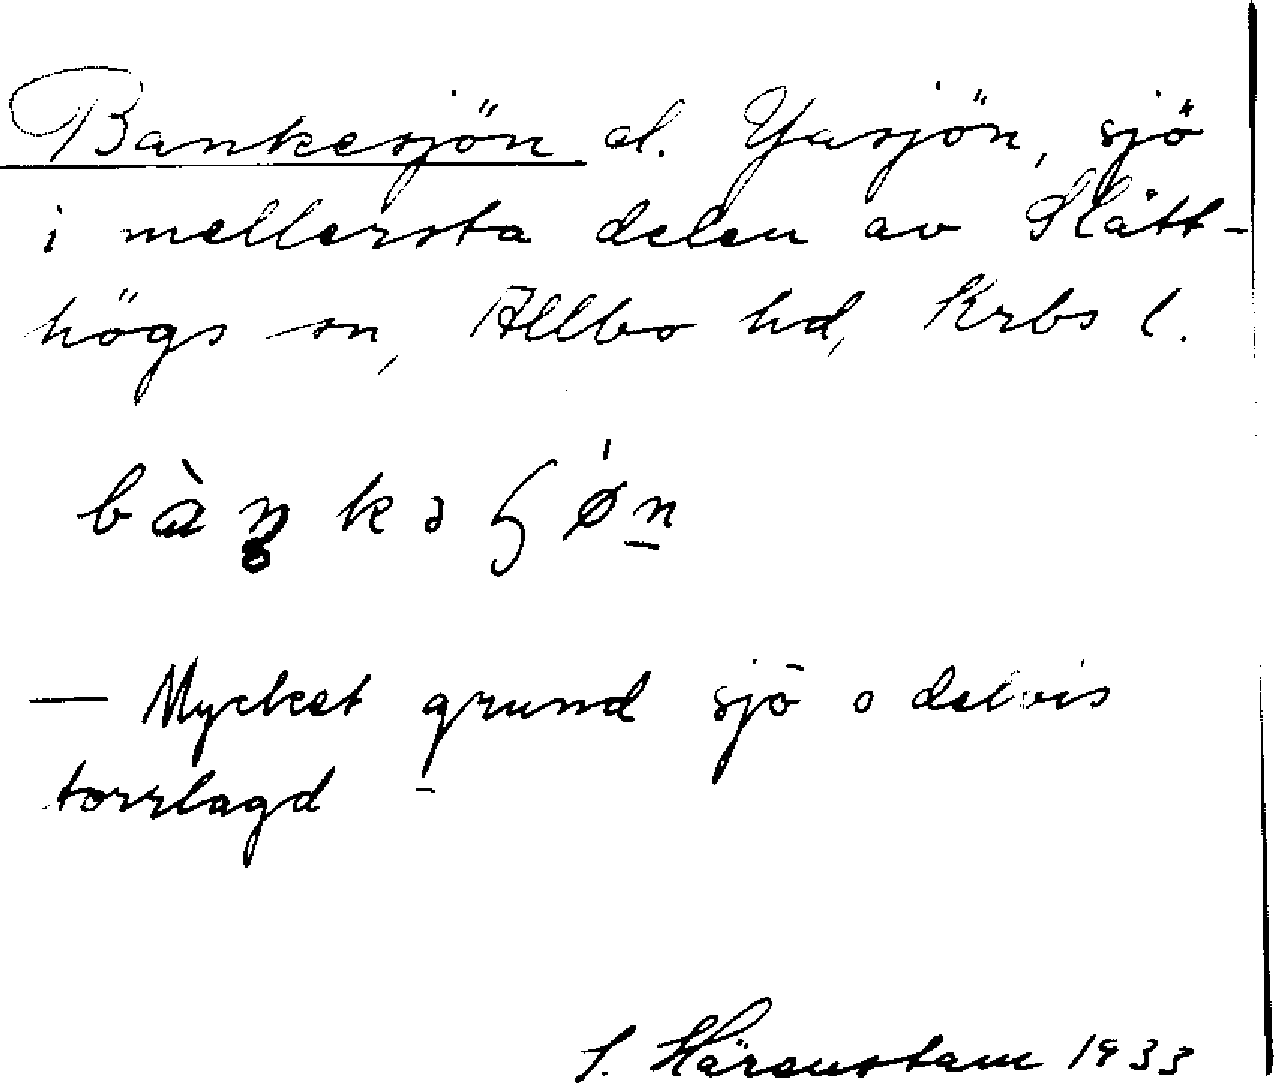 Bankesjön el. Yasjön, sjö
i mellersta delen av Slätt-
högs sn, Allbo hd, Krbs l.
bàŋkəɧø̀n
— Mycket grund sjö o delvis
torrlagd
S. Härenstam 1933